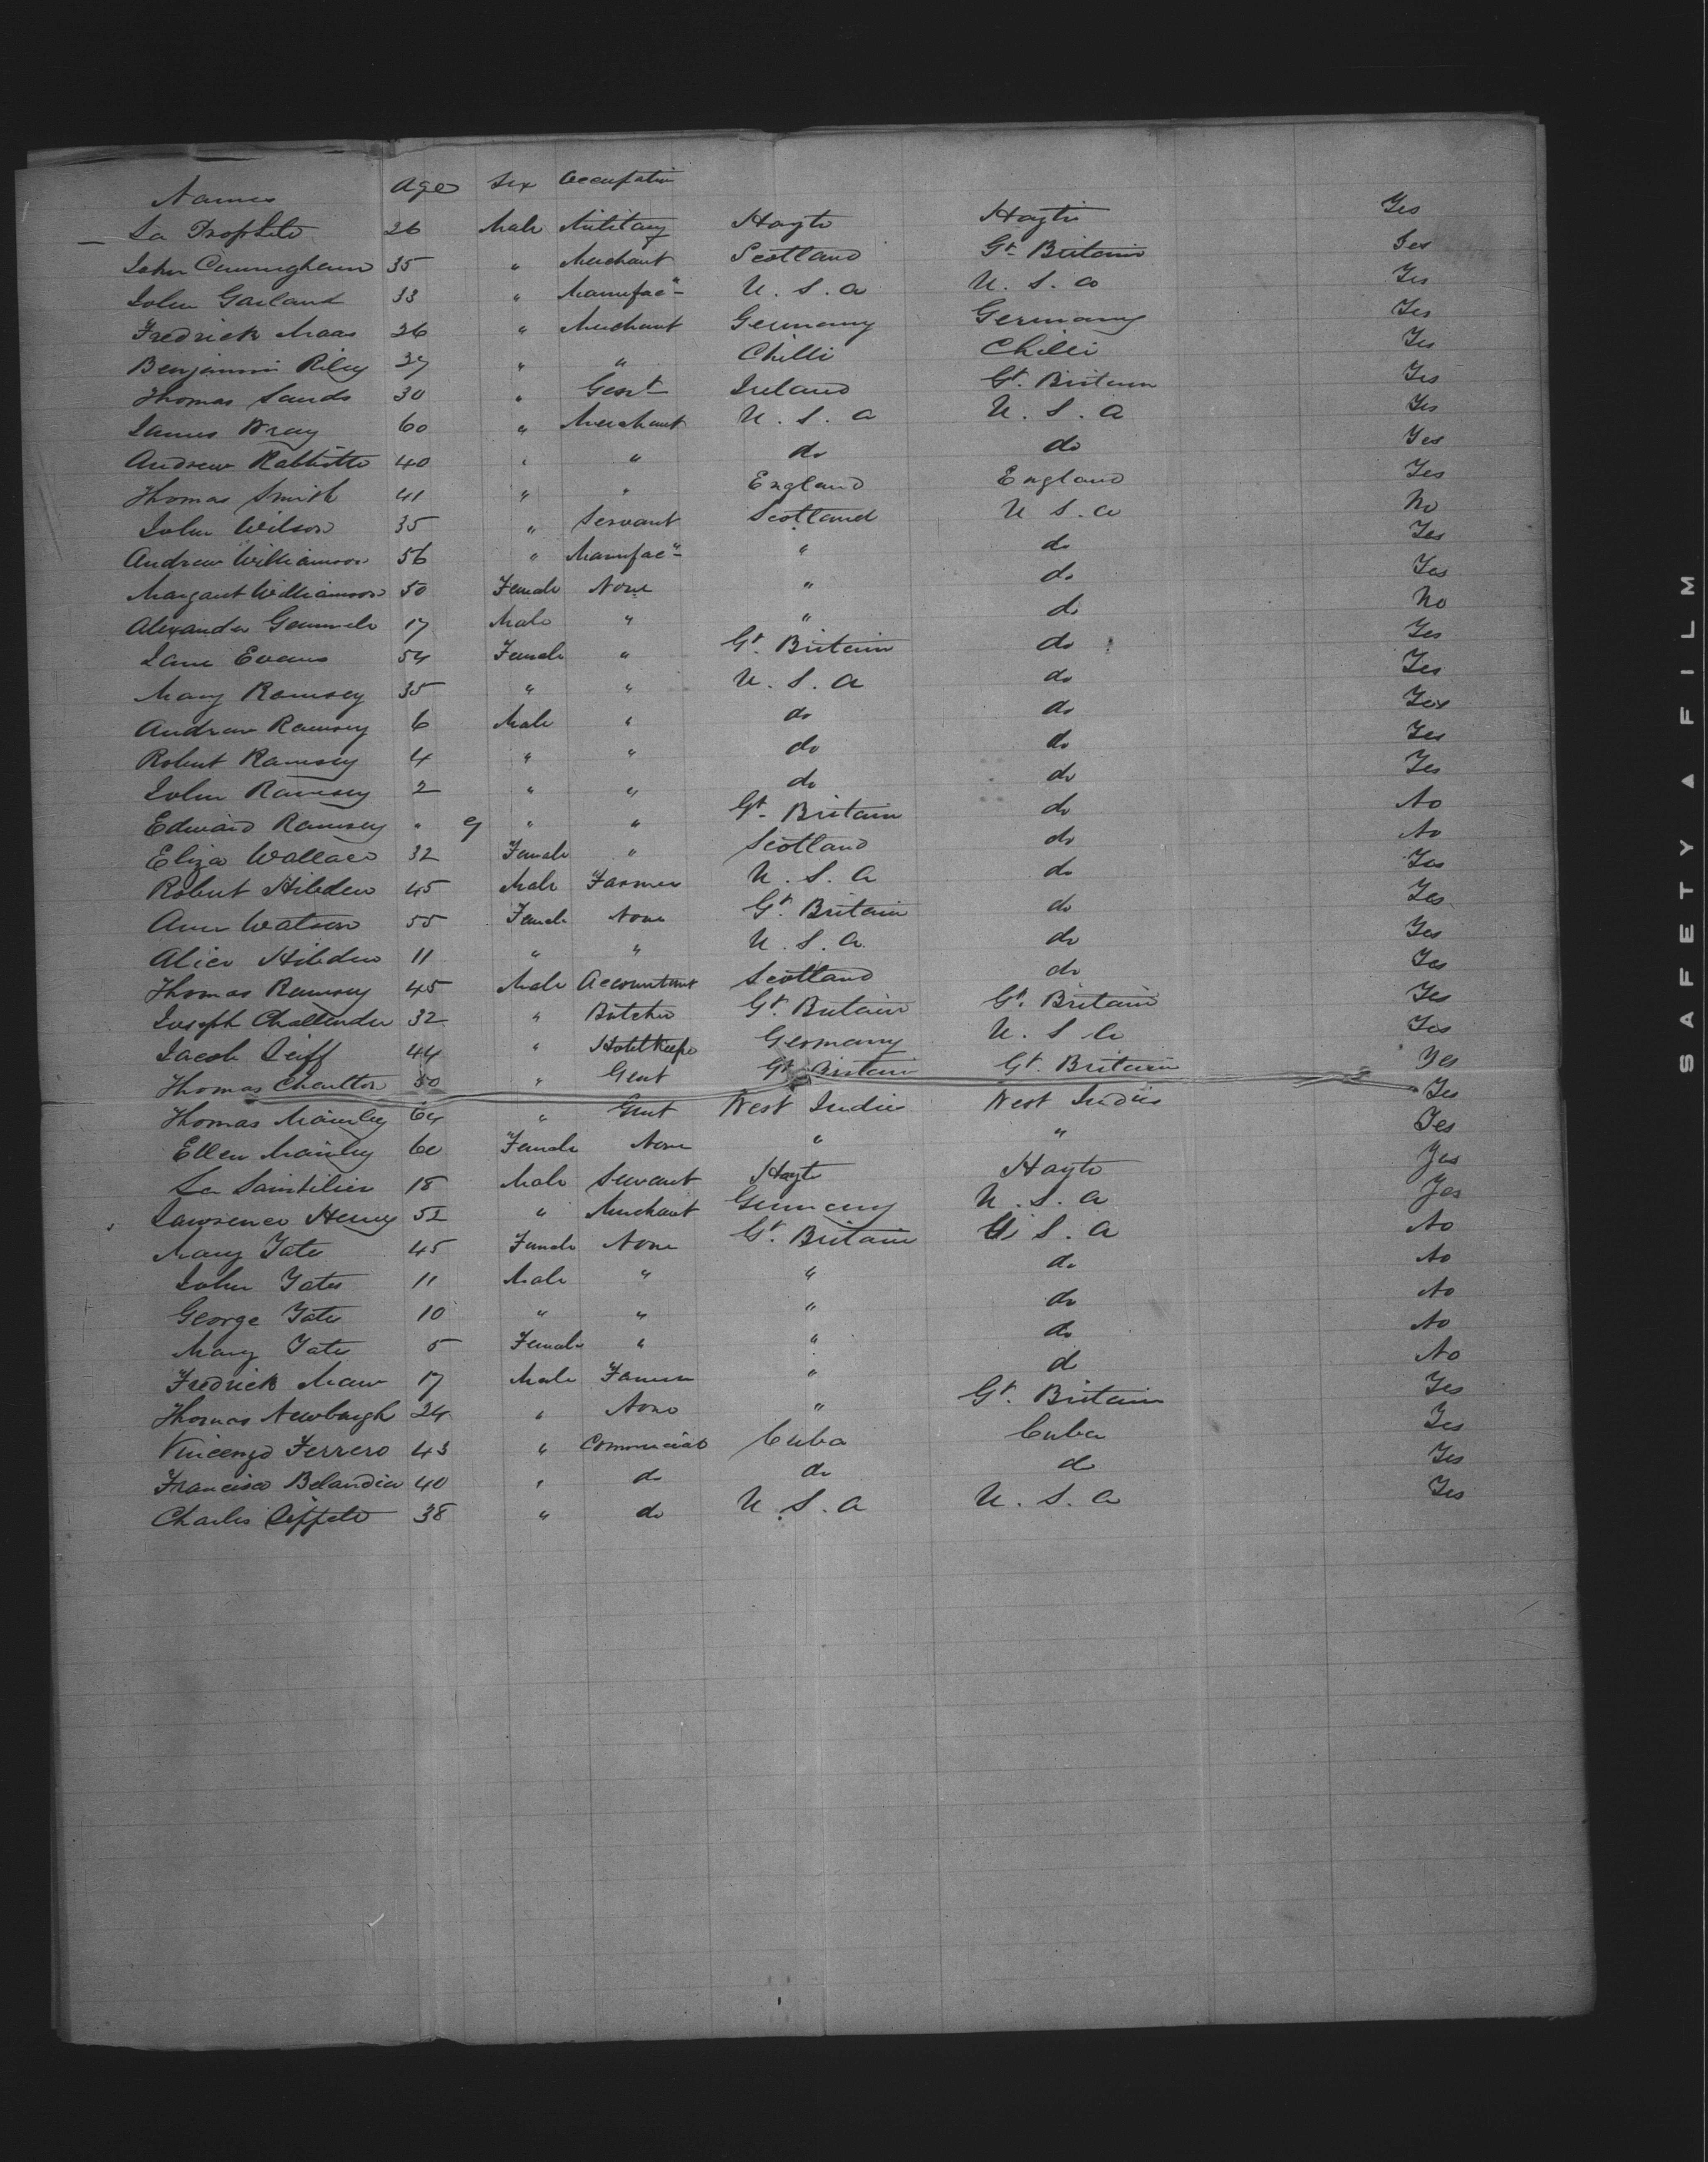 Names Age Sex Occupation
La Prophete 26 Male Military Hayte Hayti Yes
John Cunningham 35 " Merchant Scotland Gt. Britain Yes
John Garland 33 " Manufac" U. S. A U. S. A Yes
Fredrick Maas 26 " Merchant Germany Germany Yes
Benjamin Riley 37 " " Chilli Chilli Yes
Thomas Sands 30 " Gent Ireland Gt. Britain Yes
James Bray 60 " Merchant U. S. A U. S. A Yes
Andrew 40 " " do do Yes
Thomas Smith 41 " " England England Yes
John Wilson 35 " Servant Scotland U S. A No
Andrew Williamson 56 " Manufac" " do Yes
Margaret Williamson 50 Female None " do Yes
Alexander 17 Male " " do No
Jane Evans 54 Female " Gt. Britain do Yes
Mary Ramsey 35 " " U. S. A do Yes
Andrew Ramsey 6 Male " do do Yes
Robert Ramsey 4 " " do do Yes
John Ramsey 2 " " do do Yes
Edward Ramsey " 9 " " Gt. Britain do No
Eliza Wallace 32 Female " Scotland do No
Robert Hibden 45 Male Farmer U. S. A do Yes
Ann Watson 55 Female None Gt. Britain do Yes
Alice Hibden 11 " " U. S. A. do Yes
Thomas Ramsey 45 Male Accountant Scotland do Yes
Joseph Challender 32 " Butcher Gt. Britain Gt. Britain Yes
Jacob 44 " Hotel Keeper Germany U. S A Yes
Thomas Charlton 50 " Gent Gt. Britain Gt. Britain Yes
Thomas Manley 64 " Gent West Indies West Indies Yes
Ellen Manley 60 Female None " " Yes
La Saintilier 18 Male Servant Hayte Hayte Yes
Lawrence Henry 52 " Merchant Germany U. S. A Yes
Mary Tate 45 Female None Gt. Britain U. S. A No
John Tate 11 Male " " do No
George Tate 10 " " " do No
Mary Tate 5 Female " " do No
Fredrick Maw 17 Male Farmer " d No
Thomas Newburgh 24 " None " Gt. Britain Yes
Vincenzo Ferrero 43 " Commercial Cuba Cuba Yes
Francisco Belandia 40 " do do do Yes
Charles 38 " do U. S. A U. S. A Yes
SAFETY ▲ FILM